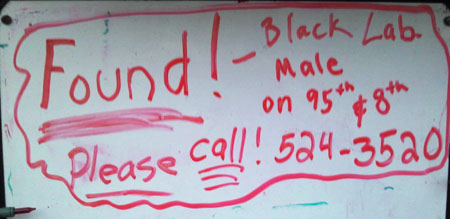 Found! - Black Lab.
Male
on 95th & 8th
Please call! 524-3520